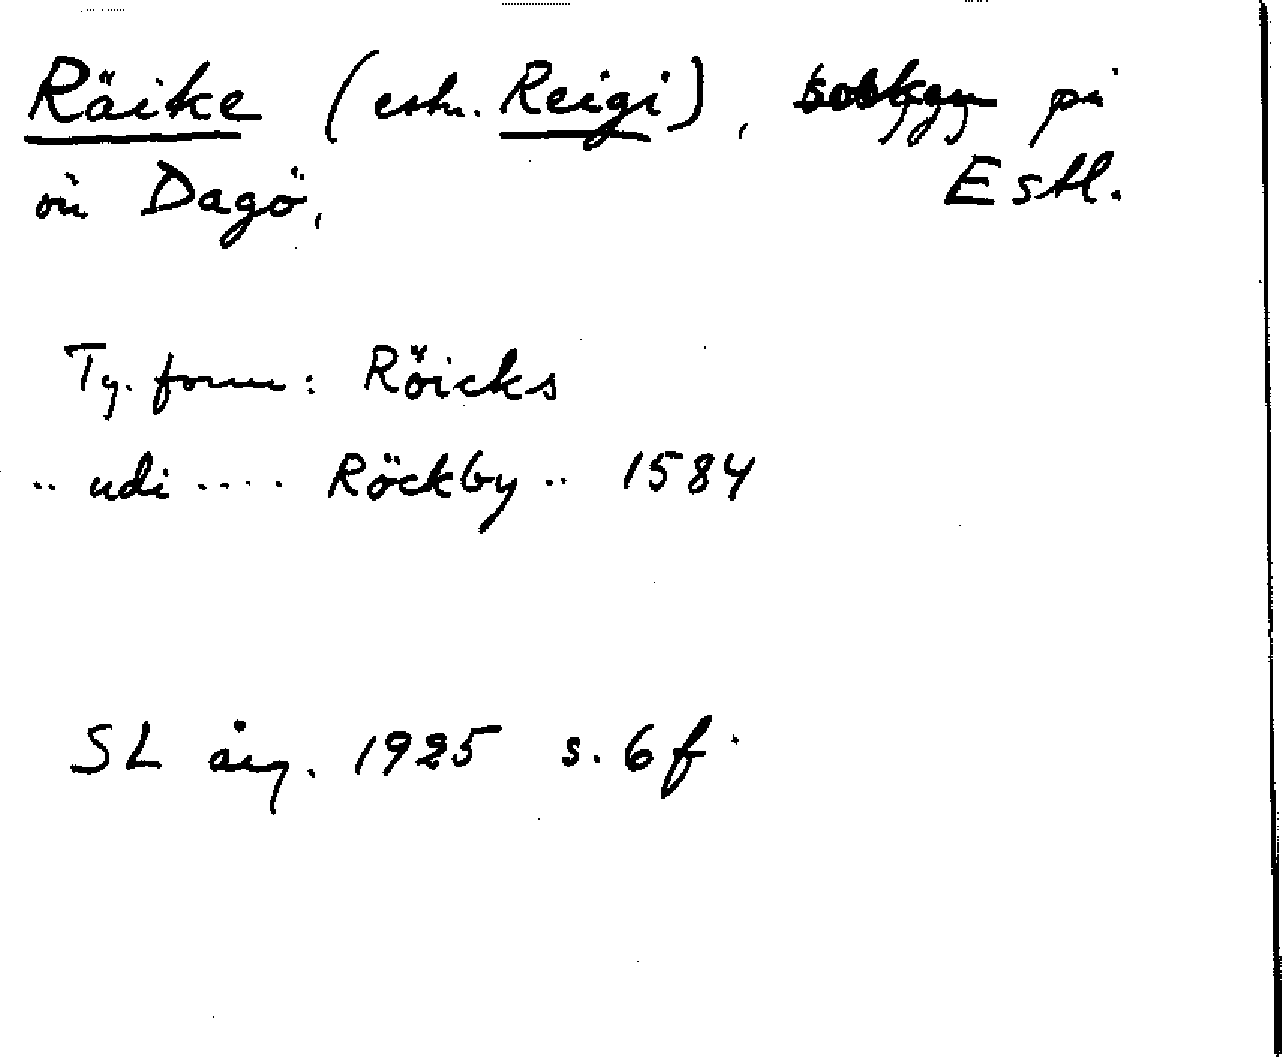 Räike (estn. Reigi), på
ön Dagö, Estl.
Ty. form: Röicks
.. udi .... Röckby .. 1584
SL årg. 1925 s. 6 f.